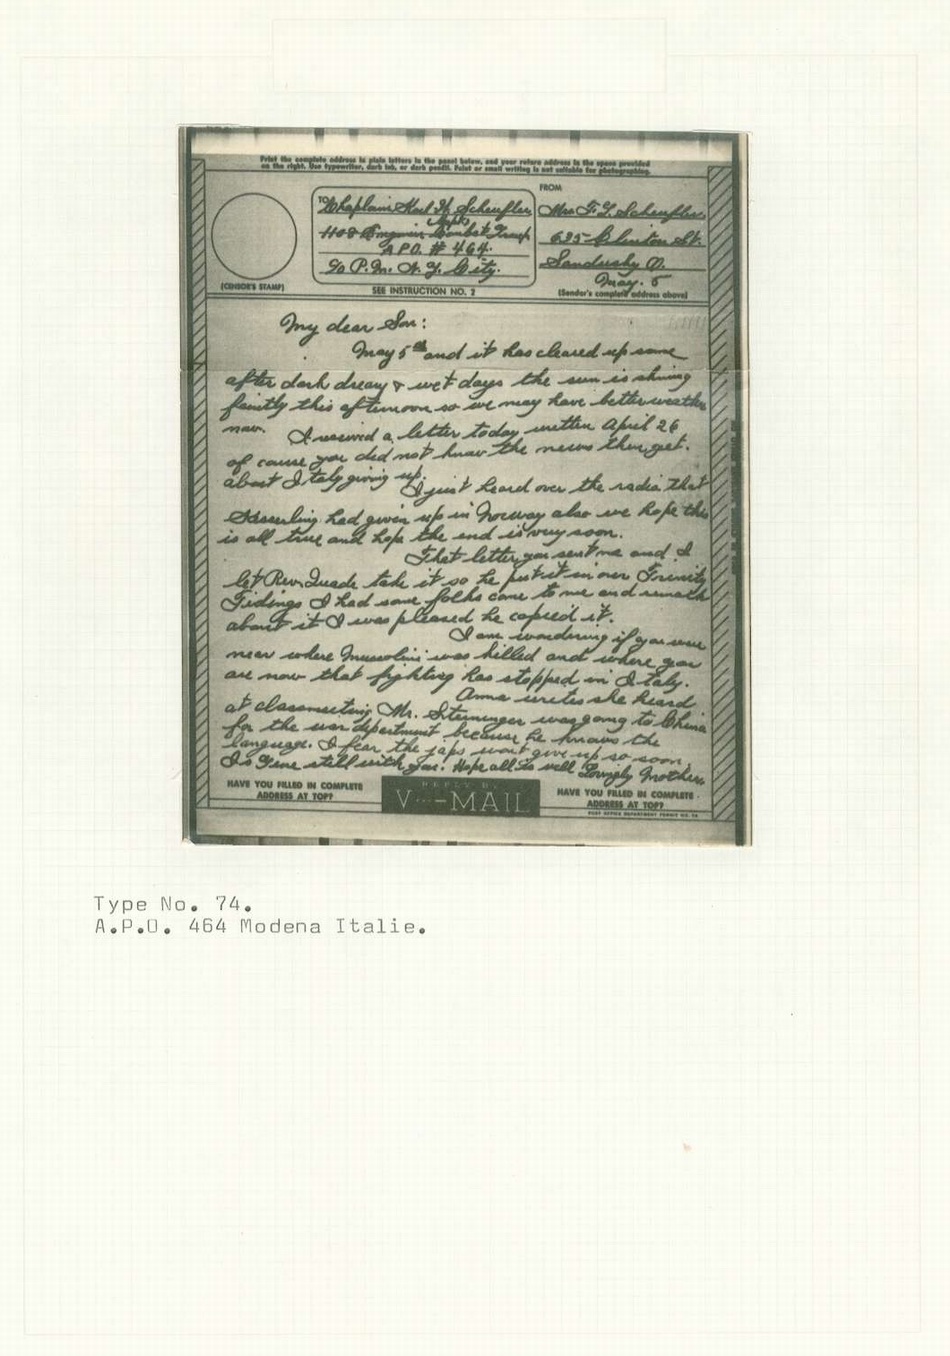 Print the complete address in plain letters in the panel below, and your return address in the space provided
on the right. Use typewriter, dark ink, or dark pencil. Faint or small writing is not suitable for photographing.
FROM
TO
Chaplain Karl H. Scheufler
Hqtrs
1108 Engineer Combat Group
A.P.O. # 464.
℅ P.M. N.Y. City.
(CENSOR'S STAMP)
SEE INSTRUCTION NO. 2
Mrs F. G. Scheufler
635 Clinton St.
Sandusky O.
May. 5
(Sender's complete address above)
My dear Son:
May 5th and it has cleared up some
after dark dreary & wet days the sun is shining
faintly this afternoon so we may have better weather
now. I received a letter today written April 26
of cause you did not know the news then yet.
about Italy giving up.
I just heard over the radio that
Kesserling had given up in Norway also we hope this
is all true and hope the end is very soon.
That letter you sent me and I
let Rev. Quade take it so he put it in our Trinity
Tidings I had some folks come to me and remark
about it I was pleased he copied it.
I am wondering if you were
near where Mussolini was killed and where you
are now that fighting has stopped in Italy.
Anna writes she heard
at classmeeting Mr. Steininger was going to China
for the war department because he knows the
language. I fear the japs wont give up so soon.
Is Gene still with you. Hope all is well Lovingly Mother.
HAVE YOU FILLED IN COMPLETE
ADDRESS AT TOP?
REPLY BY
V···-MAIL
HAVE YOU FILLED IN COMPLETE
ADDRESS AT TOP?
Type No. 74.
A.P.O. 464 Modena Italie.